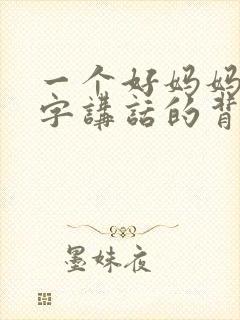 一个好妈妈
字講話的背
墨妹夜